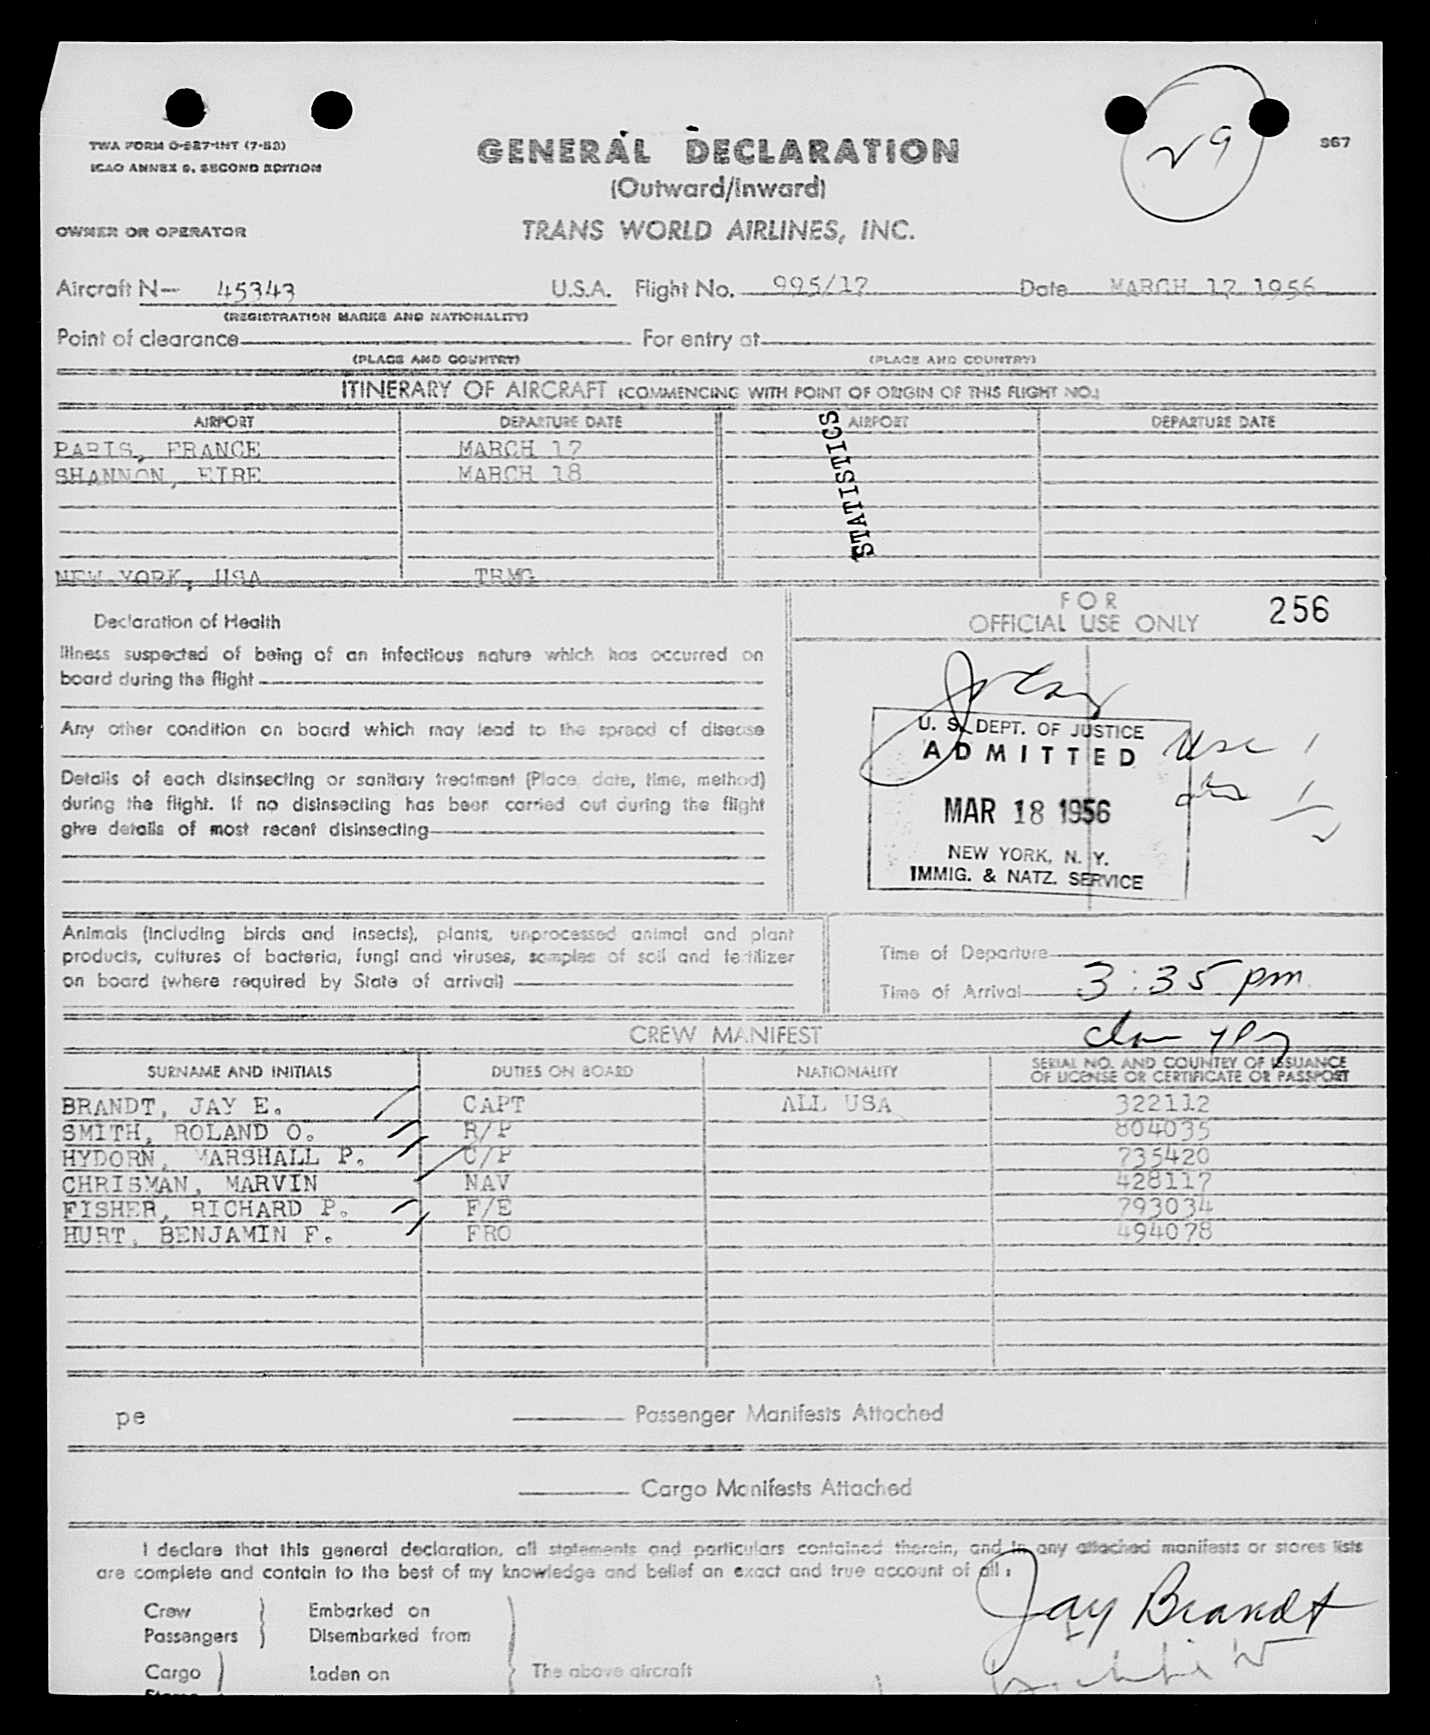 29
TWA FORM O-527-INT (7-53)
ICAO ANNEX 9, SECOND EDITION
GENERAL DECLARATION
967
(Outward/Inward)
OWNER OR OPERATOR
TRANS WORLD AIRLINES, INC.
Aircraft N— 45343 U.S.A. Flight No. 995/17 Date MARCH 17 1956
(REGISTRATION MARKS AND NATIONALITY)
Point of clearance For entry at
(PLACE AND COUNTRY) (PLACE AND COUNTRY)
ITINERARY OF AIRCRAFT (COMMENCING WITH POINT OF ORIGIN OF THIS FLIGHT NO.)
AIRPORT DEPARTURE DATE AIRPORT DEPARTURE DATE
PARIS, FRANCE MARCH 17
SHANNON, EIRE MARCH 18
STATISTICS
NEW YORK, USA TRMG
FOR
OFFICIAL USE ONLY 256
Declaration of Health
Illness suspected of being of an infectious nature which has occurred on
board during the flight
Any other condition on board which may lead to the spread of disease
Details of each disinsecting or sanitary treatment (Place, date, time, method)
during the flight. If no disinsecting has been carried out during the flight
give details of most recent disinsecting
U. S. DEPT. OF JUSTICE
ADMITTED
MAR 18 1956
NEW YORK, N. Y.
IMMIG. & NATZ. SERVICE
Animals (including birds and insects), plants, unprocessed animal and plant
products, cultures of bacteria, fungi and viruses, samples of soil and fertilizer
on board (where required by State of arrival)
Time of Departure
Time of Arrival 3:35 pm
CREW MANIFEST
SURNAME AND INITIALS DUTIES ON BOARD NATIONALITY SERIAL NO. AND COUNTRY OF ISSUANCE
OF LICENSE OR CERTIFICATE OR PASSPORT
BRANDT, JAY E. CAPT ALL USA 322112
SMITH, ROLAND O. R/P 804035
HYDORN, MARSHALL P. C/P 735420
CHRISMAN, MARVIN NAV 428117
FISHER, RICHARD P. F/E 793034
HURT, BENJAMIN F. FRO 494078
pe Passenger Manifests Attached
Cargo Manifests Attached
I declare that this general declaration, all statements and particulars contained therein, and in any attached manifests or stores lists
are complete and contain to the best of my knowledge and belief an exact and true account of all:
Jay Brandt
Crew Embarked on
Passengers Disembarked from
Cargo Laden on The above aircraft